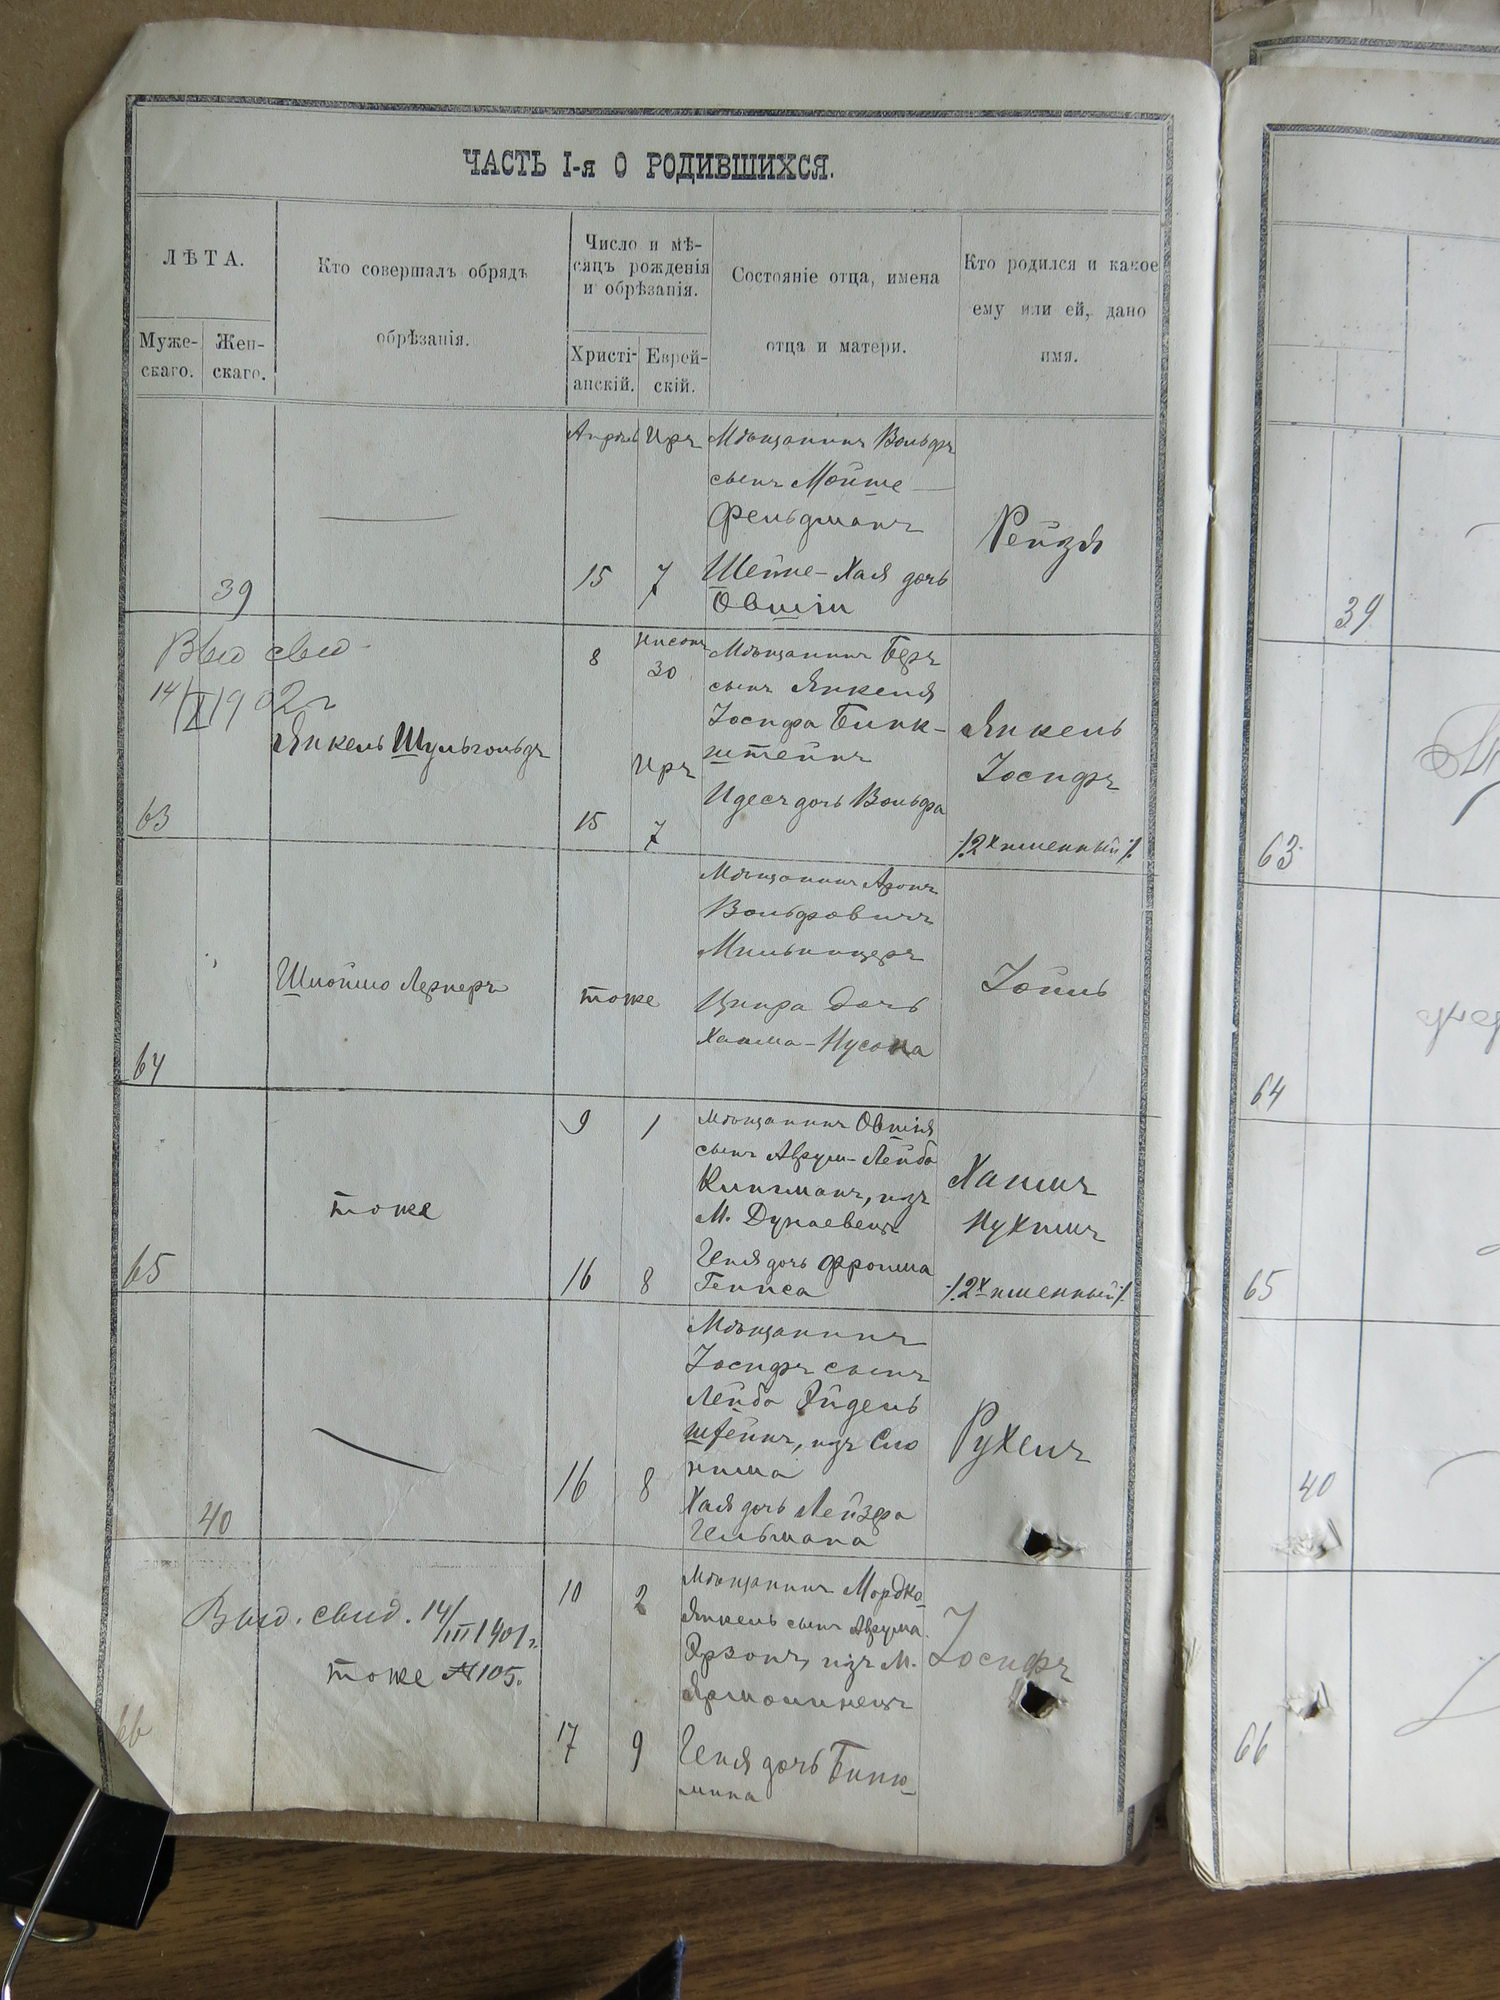 ЧАСТЬ I-я О РОДИВШИХСЯ.
ЛѢТА.
Муже-
скаго.
Жен-
скаго.
Кто совершалъ обрядъ
обрѣзанія.
Число и мѣ-
сяцъ рожденія
и обрѣзанія.
Христі-
анскій.
Еврей-
скій.
Состояніе отца, имена
отца и матери.
Кто родился и какое
ему или ей, дано
имя.
39
Апрѣль
15
Иръ
7
Мѣщанинъ Вольфъ
сынъ Мойше
Фельдманъ
Шейне-Хая дочь
Овшіи
Рейзя
Выд свид
14/I 1902 г
63
Янкель Шульгольдъ
8
15
Нисонъ
30
Иръ
7
Мѣщанинъ Беръ
сынъ Янкеля
Іосифа Бинк-
штейнъ
Идесъ дочь Вольфа
Янкель
Іосифъ
/.2х именный/.
64
Шлоймо Лернеръ
тоже
Мѣщанинъ Аронъ
Вольфовичъ
Мильницеръ
Ципра дочь
Хаима-Нусона
Іойль
65
тоже
9
16
1
8
Мѣщанинъ Овшія
сынъ Аврум-Лейба
Клигманъ, изъ
М. Дунаевецъ
Геня дочь Фроима
Геписа
Хаимъ
Нухимъ
/.2х именный/.
40
16
8
Мѣщанинъ
Іосифъ сынъ
Лейба Эйдель
штейнъ, изъ Сло
нима
Хая дочь Лейзера
Гельмана
Рухель
66
Выд. свид. 14/III 1901 г.
тоже №105.
10
17
2
9
Мѣщанинъ Мордко-
Янкель сынъ Аврума
Эрзонъ, изъ М.
Ярмолинецъ
Геня дочь Биню-
мина
Іосифъ
39
63
64
65
40
66